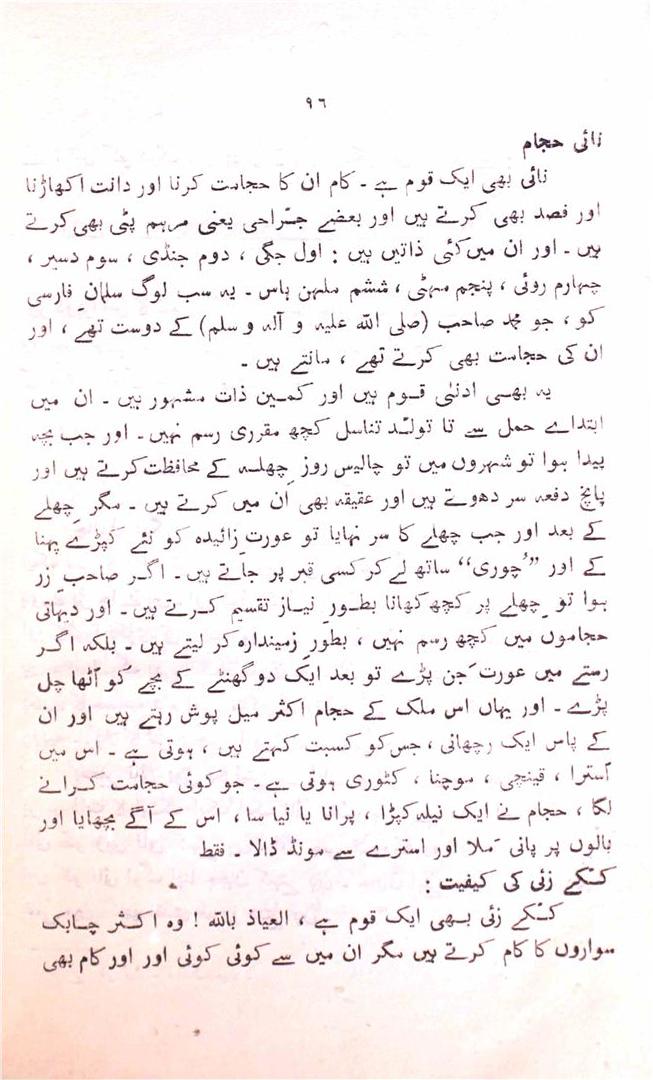 ۹٦
نائی حجام
نائی بھی ایک قوم ہے ۔ کام ان کا حجامت کرنا اور دانت اکھاڑنا
اور فصد بھی کرتے ہیں اور بعضے جرّاحی یعنی مرہم پٹی بھی کرتے
ہیں ۔ اور ان میں کئی ذاتیں ہیں : اول جگی ، دوم جنڈی ، سوم دسیر ،
چہارم روئی ، پنجم مہٹی ، ششم ملہن ہاس ۔ یہ سب لوگ سلمانِ فارسی
کو ، جو محمد صاحب (صلی اللہ علیہ و آلہ و سلم) کے دوست تھے ، اور
ان کی حجامت بھی کرتے تھے ، مانتے ہیں ۔
یہ بھی ادنیٰ قوم ہیں اور کمین ذات مشہور ہیں ۔ ان میں
ابتداے حمل سے تا تولّد تناسل کچھ مقرری رسم نہیں ۔ اور جب بچہ
پیدا ہوا تو شہروں میں تو چالیس روز چِھلہ کے محافظت کرتے ہیں اور
پانچ دفعہ سر دھوتے ہیں اور عقیقہ بھی اُن میں کرتے ہیں ۔ مگر چِھلے
کے بعد اور جب چھلے کا سر نہایا تو عورتِ زائیدہ کو نئے کپڑے پہنا
کے اور ”چُوری“ ساتھ لے کر کسی قبر پر جاتے ہیں ۔ اگر صاحبِ زر
ہوا تو چِھلے پر کچھ کھانا بطورِ نیاز تقسیم کرتے ہیں ۔ اور دیہاتی
حجاموں میں کچھ رسم نہیں ، بطورِ زمیندارہ کر لیتے ہیں ۔ بلکہ اگر
رستے میں عورت جَن پڑے تو بعد ایک دو گھنٹے کے بچے کو اُٹھا چل
پڑے ۔ اور یہاں اس ملک کے حجام اکثر میل پوش رہتے ہیں اور ان
کے پاس ایک رچھانی ، جس کو کسبت کہتے ہیں ، ہوتی ہے ۔ اس میں
اُسترا ، قینچی ، موچنا ، کٹوری ہوتی ہے ۔ جو کوئی حجامت کرانے
لگا ، حجام نے ایک نیلہ کپڑا ، پرانا یا نیا سا ، اس کے آگے بچھایا اور
بالوں پر پانی مَلا اور استرے سے مونڈ ڈالا ۔ فقط
ککے زئی کی کیفیت :
ککے زئی بھی ایک قوم ہے ، العیاذ باللہ ! وہ اکثر چابک
سواروں کا کام کرتے ہیں مگر ان میں سے کوئی کوئی اور اور کام بھی